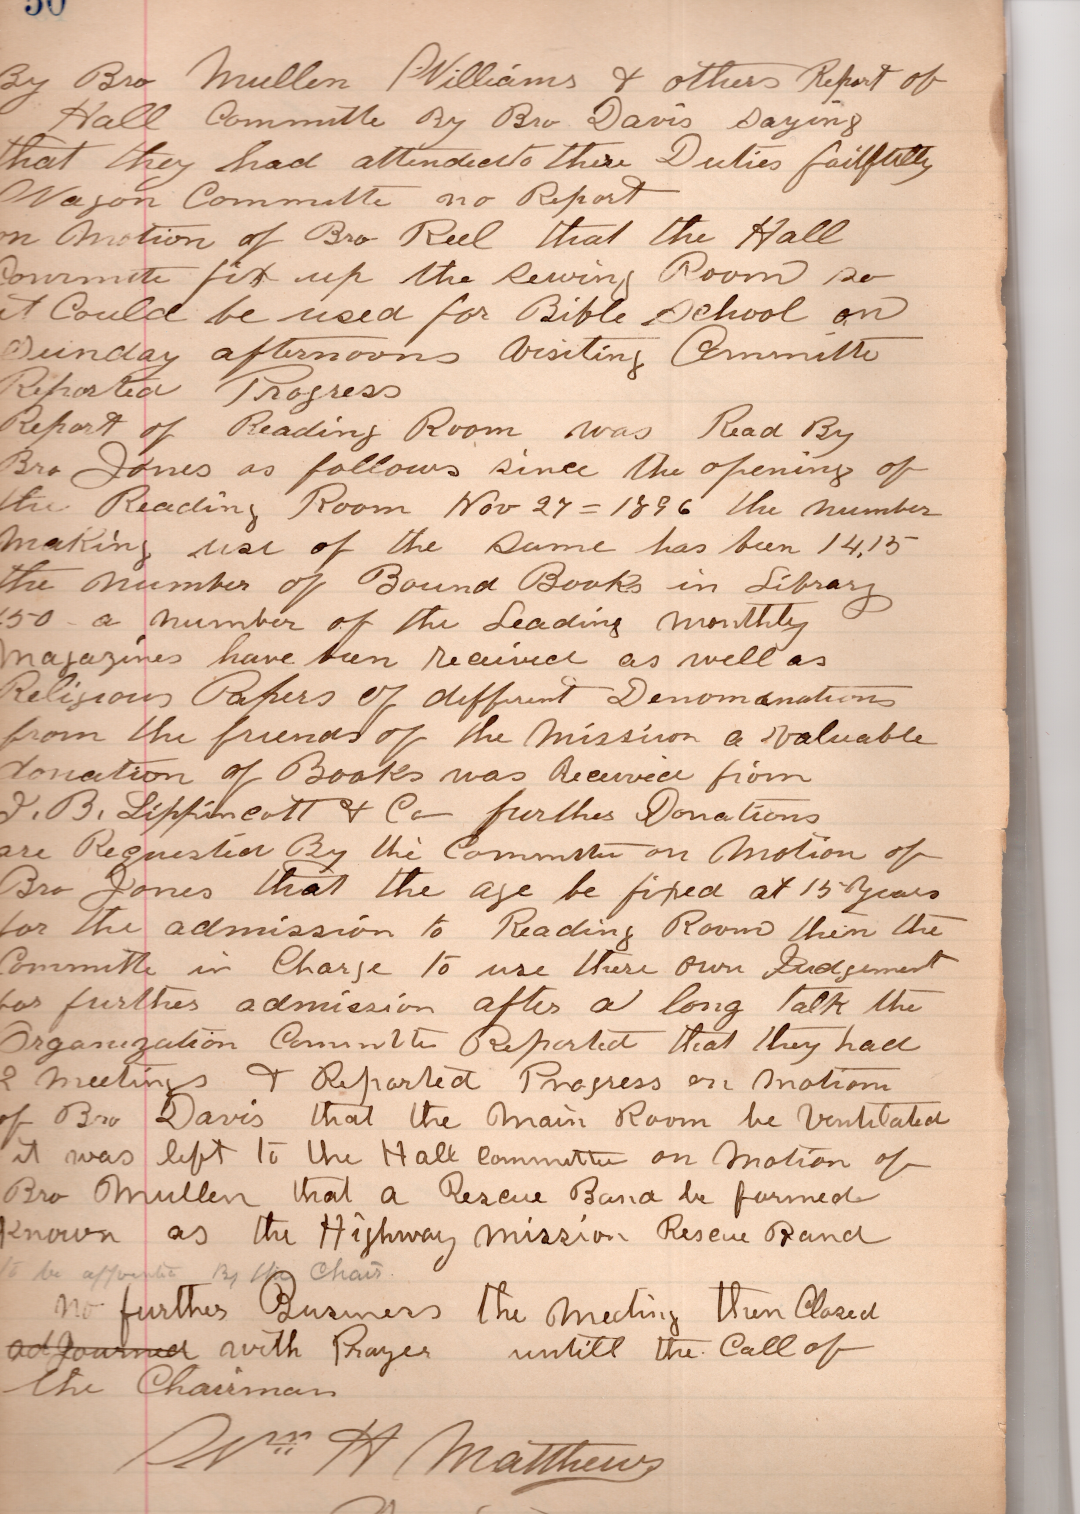 50
By Bro Mullen Williams & others Report of
Hall Committe By Bro Davis saying
that they had attended to there Duties faithfully
Wagon Committe no Report
on Motion of Bro Reel that the Hall
Committe fix up the sewing Room so
it Could be used for Bible School on
Sunday afternoons Visiting Committe
Reported Progress
Report of Reading Room was Read By
Bro Jones as follows since the opening of
the Reading Room Nov 27 = 1896 the number
making use of the same has been 14,15
the number of Bound Books in Library
150 - a number of the Leading monthly
magazines have been received as well as
Religious Papers of different Denomanations
from the friends of the Mission a valuable
donation of Books was Received from
J. B. Lippincott & Co further Donations
are Requested By the Committe on Motion of
Bro Jones that the age be fixed at 15 Years
for the admission to Reading Room then the
Committe in Charge to use there own Judgement
for further admission after a long talk the
Organization Committe Reported that they had
2 meetings & Reported Progress on motion
of Bro Davis that the Main Room be Ventilated
it was left to the Hall committee on Motion of
Bro Mullen that a Rescue Band be formed
Known as the Highway Mission Rescue Band
to be appointed By the Chair
No further Business the Meeting then Closed
adjourned with Prayer untill the Call of
the Chairman
Wm H Matthews